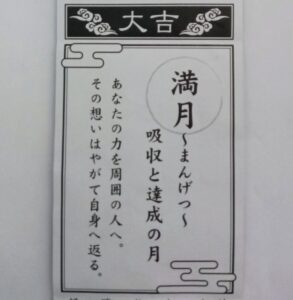 大吉
満月～まんげつ～
吸収と達成の月
あなたの力を周囲の人へ。
その想いはやがて自身へ返る。